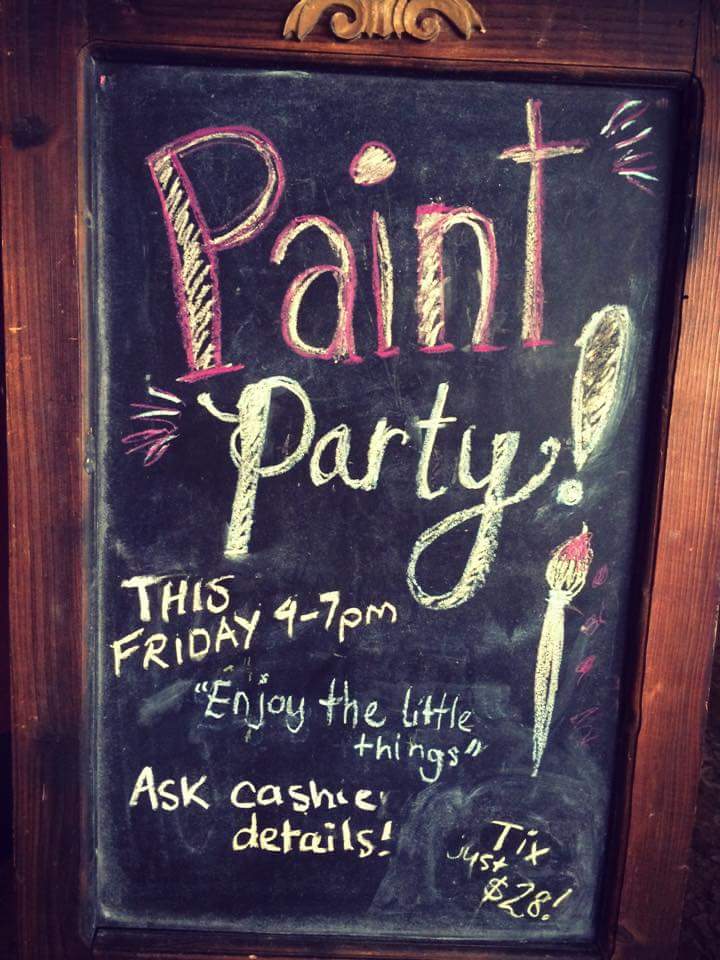 Paint
Party!
THIS
FRIDAY 4-7pm
"Enjoy the little
things"
ASK cashier
details!
Tix
just
$28!